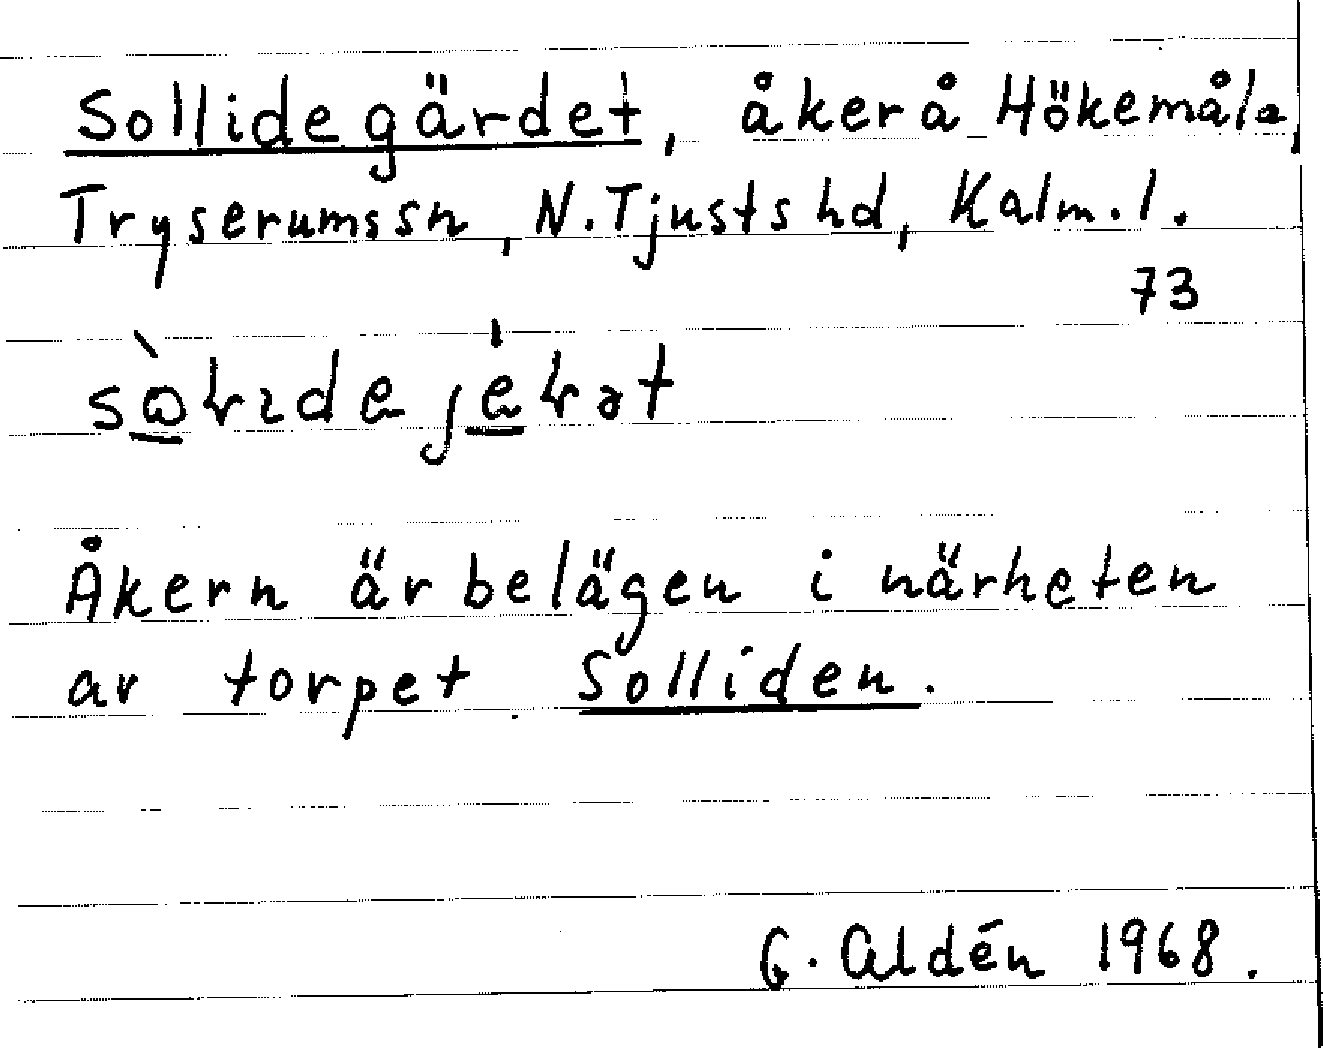 Sollidegärdet, åker å Hökemåla,
Tryserums sn, N. Tjusts hd, Kalm. l.
73
Åkern är belägen i närheten
av torpet Solliden.
G. Aldén 1968.